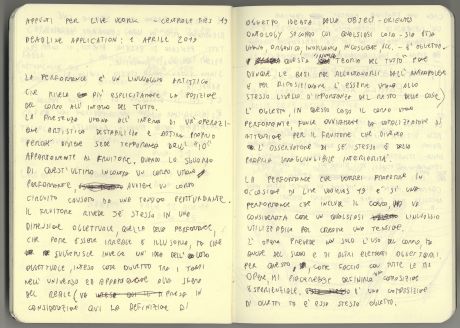 APPUNTI PER LIVE WORKS - CENTRALE FIES 19
DEADLINE APPLICATION: 1 APRILE 2019
LA PERFORMANCE È UN LINGUAGGIO ARTISTICO
CHE RIVELA PIÙ ESPLICITAMENTE LA POSIZIONE
DEL CORPO ALL'INTERNO DEL TUTTO.
LA PRESENZA UMANA ALL'INTERNO DI UN'OPERAZIONE
ARTISTICA DESTABILIZZA E ATTIRA PROPRIO
PERCHÉ DIVIENE SEDE TEMPORANEA DELL' "IO"
APPARTENENTE AL FRUITORE, QUANDO LO SGUARDO
DI QUEST'ULTIMO INCONTRA UN CORPO UMANO
PERFORMANTE AVVIENE UN CORTO
CIRCUITO CAUSATO DA UNA TENSIONE PERTURBANTE.
IL FRUITORE RIVEDE SE STESSO IN UNA
DIMENSIONE OGGETTUALE, QUELLA DELLA PERFORMANCE,
CHE PUÒ ESSERE IRREALE E ILLUSORIA, MA CHE
SUGGERISCE INVECE UN'IDEA DELL'
OGGETTUALE, INTESO COME OGGETTO TRA I TANTI
NELL'UNIVERSO ED APPARTENENTE ALLO STESSO
DEL REALE (PRESA IN
CONSIDERAZIONE QUI LA DEFINIZIONE DI
OGGETTO IDEATA DALLA OBJECT-ORIENTED
ONTOLOGY SECONDO CUI QUALSIASI COSA - SIA ESSA
UMANO, ORGANICO, INORGANICO, INVISIBILE ECC. - È OGGETTO.
QUESTA TEORIA DEL TUTTO PONE
DUNQUE LE BASI PER ALLONTANARCI DALL'ANTROPOCENE
E PER RIPOSIZIONARE L'ESSERE UMANO ALLO
STESSO LIVELLO D'IMPORTANZA DEL RESTO DELLE COSE)
L'OGGETTO IN QUESTO CASO IL CORPO UMANO
PERFORMANTE FUNGE OVVIAMENTE DA CATALIZZATORE DI
ATTENZIONE PER IL FRUITORE CHE DIVIENE
L'OSSERVATORE DI SE STESSO E DELLA
PROPRIA IRRAGGIUNGIBILE INTERIORITÀ.
LA PERFORMANCE CHE VORREI PROPORRE IN
OCCASIONE DI LIVE WORKS 19 È SÌ UNA
PERFORMANCE CHE INCLUDE IL CORPO, MA VA
CONSIDERATA COME UN QUALSIASI LINGUAGGIO
UTILIZZABILE PER CREARE UNA TENSIONE.
L'OPERA PREVEDE UN SOLO L'USO DEL CORPO, MA
ANCHE DEL SUONO E DI ALTRI ELEMENTI OGGETTUALI.
PER QUESTO, COME FACCIO CON TUTTE LE MIE
OPERE, MI PIACEREBBE DEFINIRLA COMPOSIZIONE
ESPERIENZIALE, È UNA COMPOSIZIONE
DI OGGETTI ED È ESSA STESSA OGGETTO.